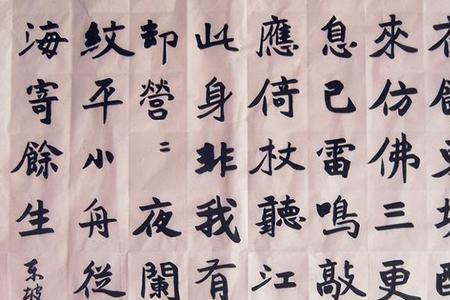 來仿佛三更
息已雷鳴敲
應倚杖聽江
此身非我有
却營〻夜闌
紋平小舟從
海寄餘生
東坡